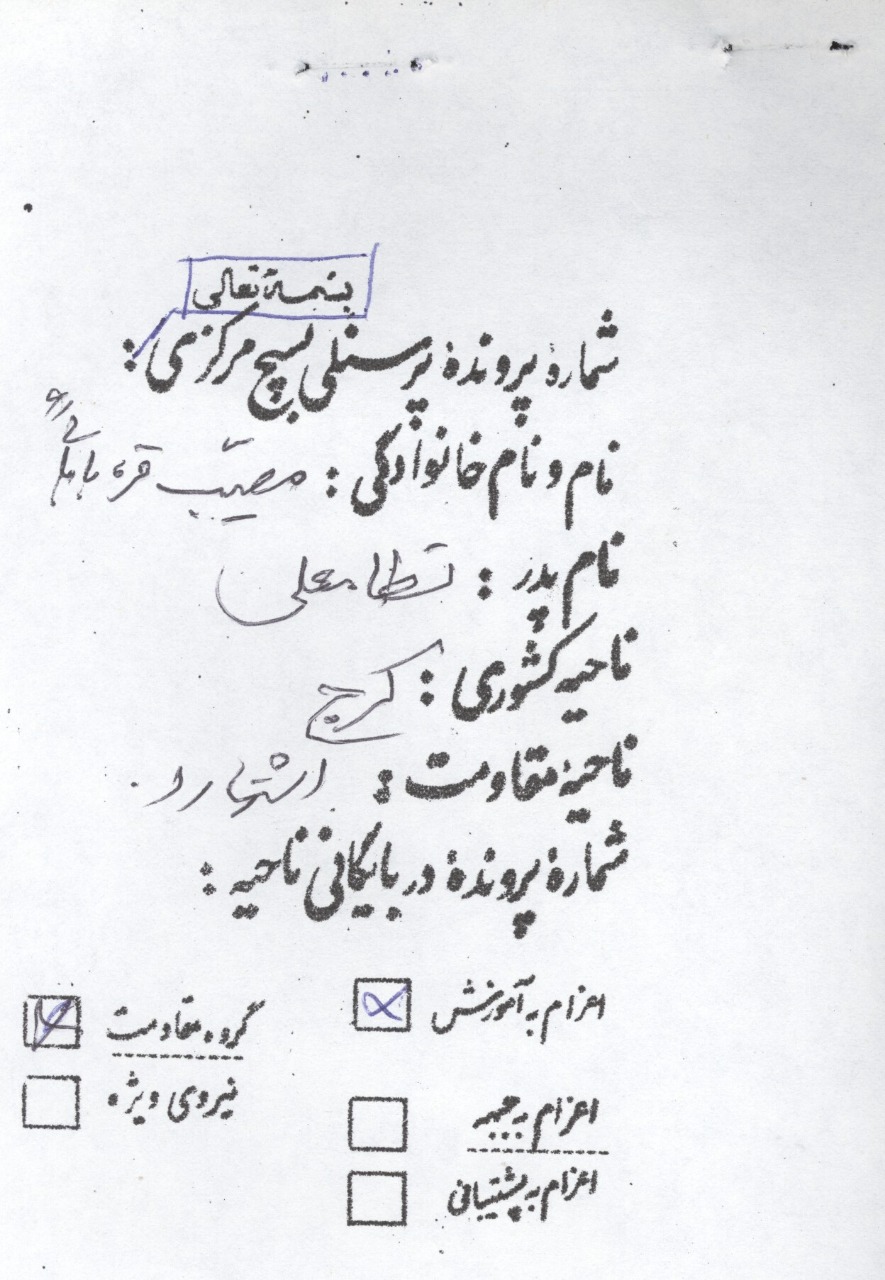 بسمه تعالی
شماره پرونده پرسنلی بسیج مرکزی :
نام و نام خانوادگی : مصیب قره
نام پدر :
ناحیه کشوری : کرج
ناحیه مقاومت : اشتهارد
شماره پرونده در بایگانی ناحیه :
اعزام به آموزش
گروه مقاومت
نیروی ویژه
اعزام به جبهه
اعزام به پشتیبانی